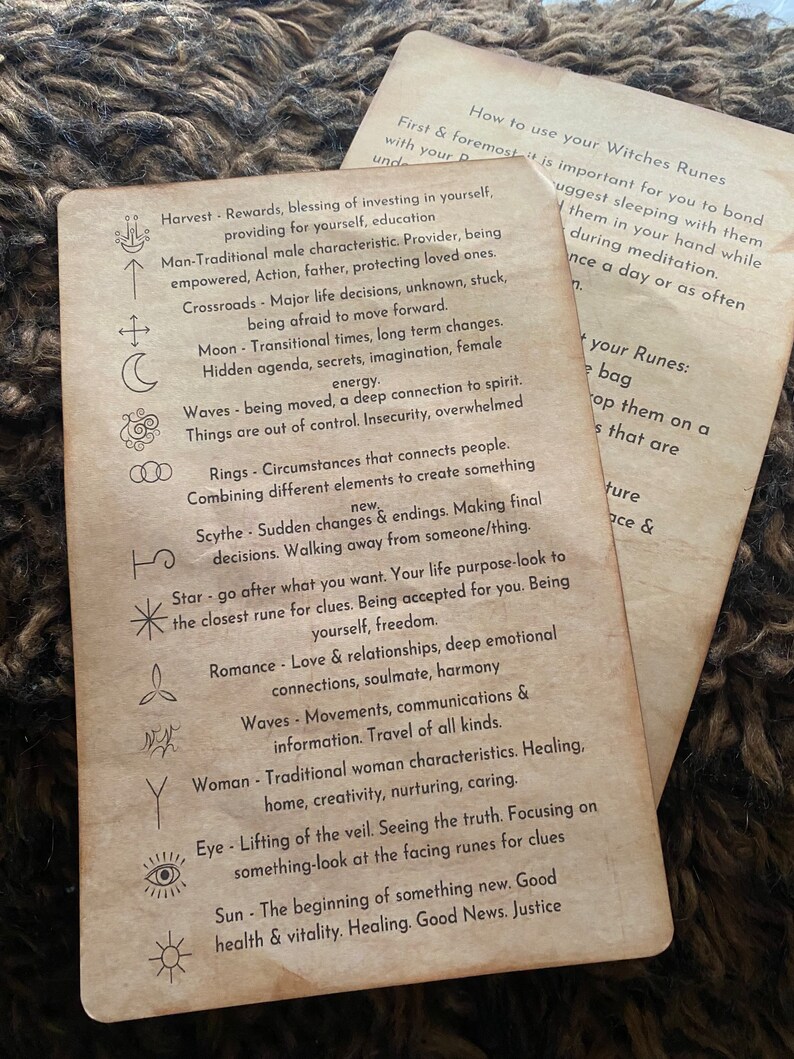 Harvest - Rewards, blessing of investing in yourself,
providing for yourself, education
Man-Traditional male characteristic. Provider, being
empowered, Action, father, protecting loved ones.
Crossroads - Major life decisions, unknown, stuck,
being afraid to move forward.
Moon - Transitional times, long term changes.
Hidden agenda, secrets, imagination, female
energy.
Waves - being moved, a deep connection to spirit.
Things are out of control. Insecurity, overwhelmed
Rings - Circumstances that connects people.
Combining different elements to create something
new.
Scythe - Sudden changes & endings. Making final
decisions. Walking away from someone/thing.
Star - go after what you want. Your life purpose-look to
the closest rune for clues. Being accepted for you. Being
yourself, freedom.
Romance - Love & relationships, deep emotional
connections, soulmate, harmony
Waves - Movements, communications &
information. Travel of all kinds.
Woman - Traditional woman characteristics. Healing,
home, creativity, nurturing, caring.
Eye - Lifting of the veil. Seeing the truth. Focusing on
something-look at the facing runes for clues
Sun - The beginning of something new. Good
health & vitality. Healing. Good News. Justice
How to use your Witches Runes
First & foremost, it is important for you to bond
with your
suggest sleeping with them
them in your hand while
during meditation.
once a day or as often
your Runes:
bag
drop them on a
that are
&